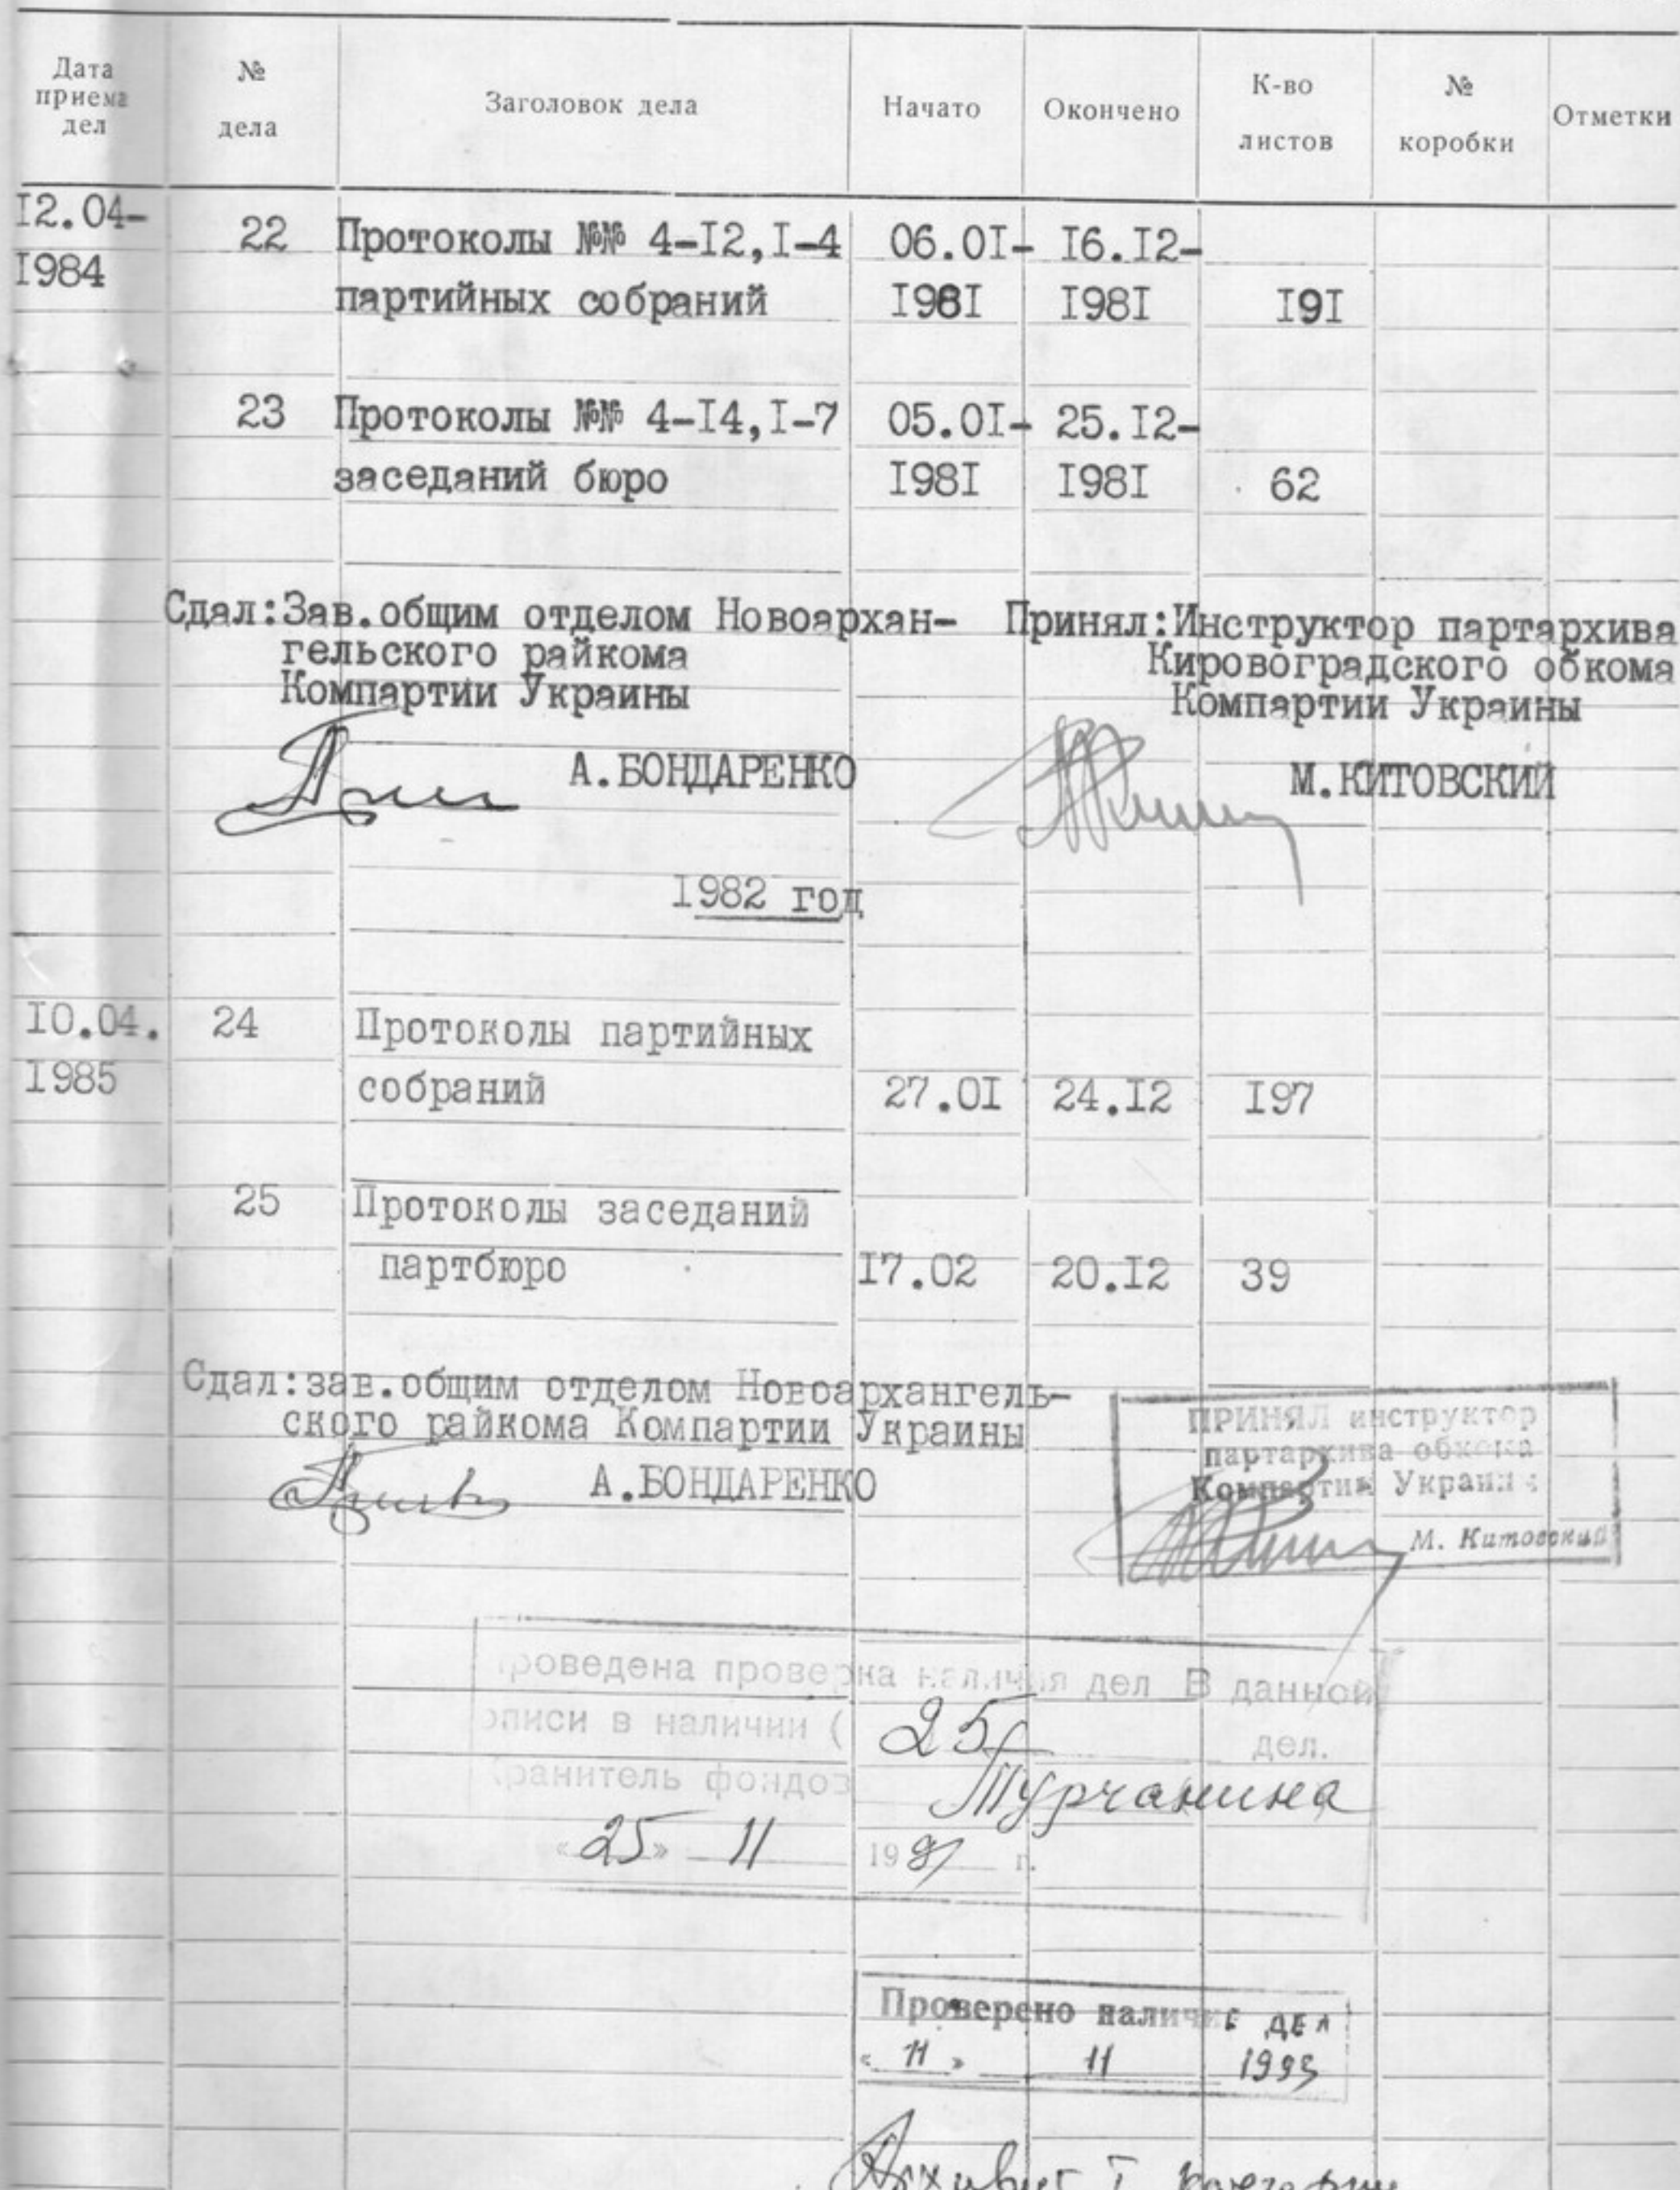 Дата приема дел № дела Заголовок дела Начато Окончено К-во листов № коробки Отметки
I2.04- 22 Протоколы №№ 4-I2,I-4 06.0I- I6.I2-
I984 партийных собраний I98I I98I I9I
23 Протоколы №№ 4-I4,I-7 05.0I- 25.I2-
заседаний бюро I98I I98I 62
Сдал:Зав.общим отделом Новоархан-
гельского райкома
Компартии Украины
А.БОНДАРЕНКО
Принял:Инструктор партархива
Кировоградского обкома
Компартии Украины
М.КИТОВСКИЙ
I982 год
I0.04. 24 Протоколы партийных
I985 собраний 27.0I 24.I2 I97
25 Протоколы заседаний
партбюро I7.02 20.I2 39
Сдал:зав.общим отделом Новоархангель-
ского райкома Компартии Украины
А.БОНДАРЕНКО
ПРИНЯЛ инструктор
партархива обкома
Компартии Украины
М. Китовский
роведена проверка наличия дел В данной
описи в наличии ( 25 дел.
хранитель фондов Турчанина
«25» 11 198 г.
Проверено наличие дел
«11» 11 1993
Архивист I категории